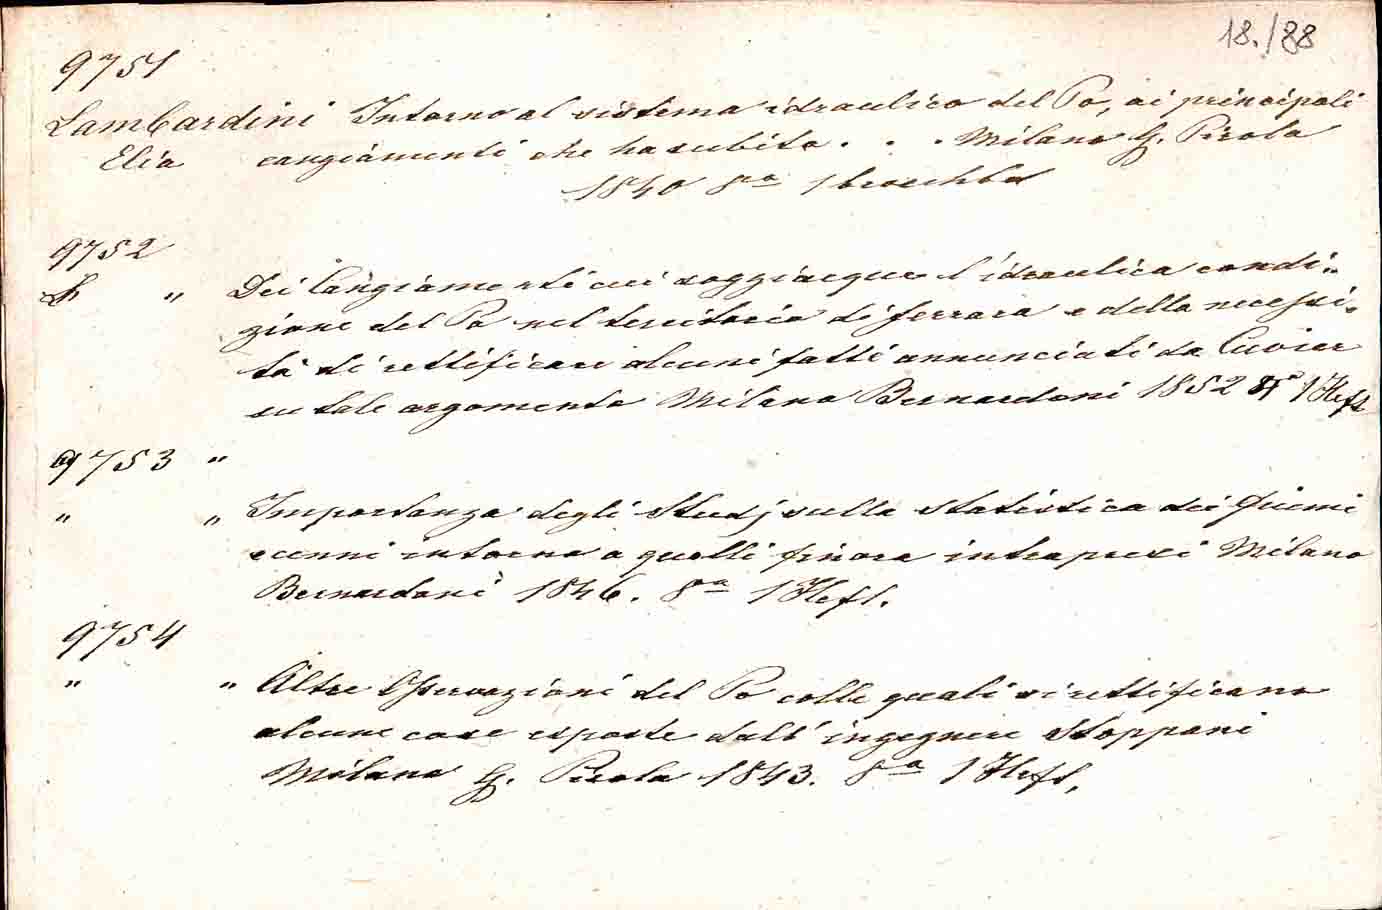 18./88
9751
Lambardini Intorno al sistema idraulico del Po, ai principali
Elia cangiamenti che ha subito . . . Milano G. Pirola
1840 8va 1 brochbd
9752
L " Dei Cangiamenti cui soggiacque l'idraulica condi-
zione del Po nel territorio di ferrara e della necessi-
tà di rettificare alcuni fatti annunciati da Cuvier
su tale argomento Milano Bernardoni 1852 1 Heft
9753 "
" " Importanza degli Studj sulla statistica dei fiumi
e cenni intorno a quelli finora intrapresi Milano
Bernardoni 1846. 8va 1 Heft.
9754
" " Altre Osservazioni del Po colle quali si rettificano
alcune cose esposte dall'ingegnere Stoppani
Milano G. Pirola 1843. 8va 1 Heft,